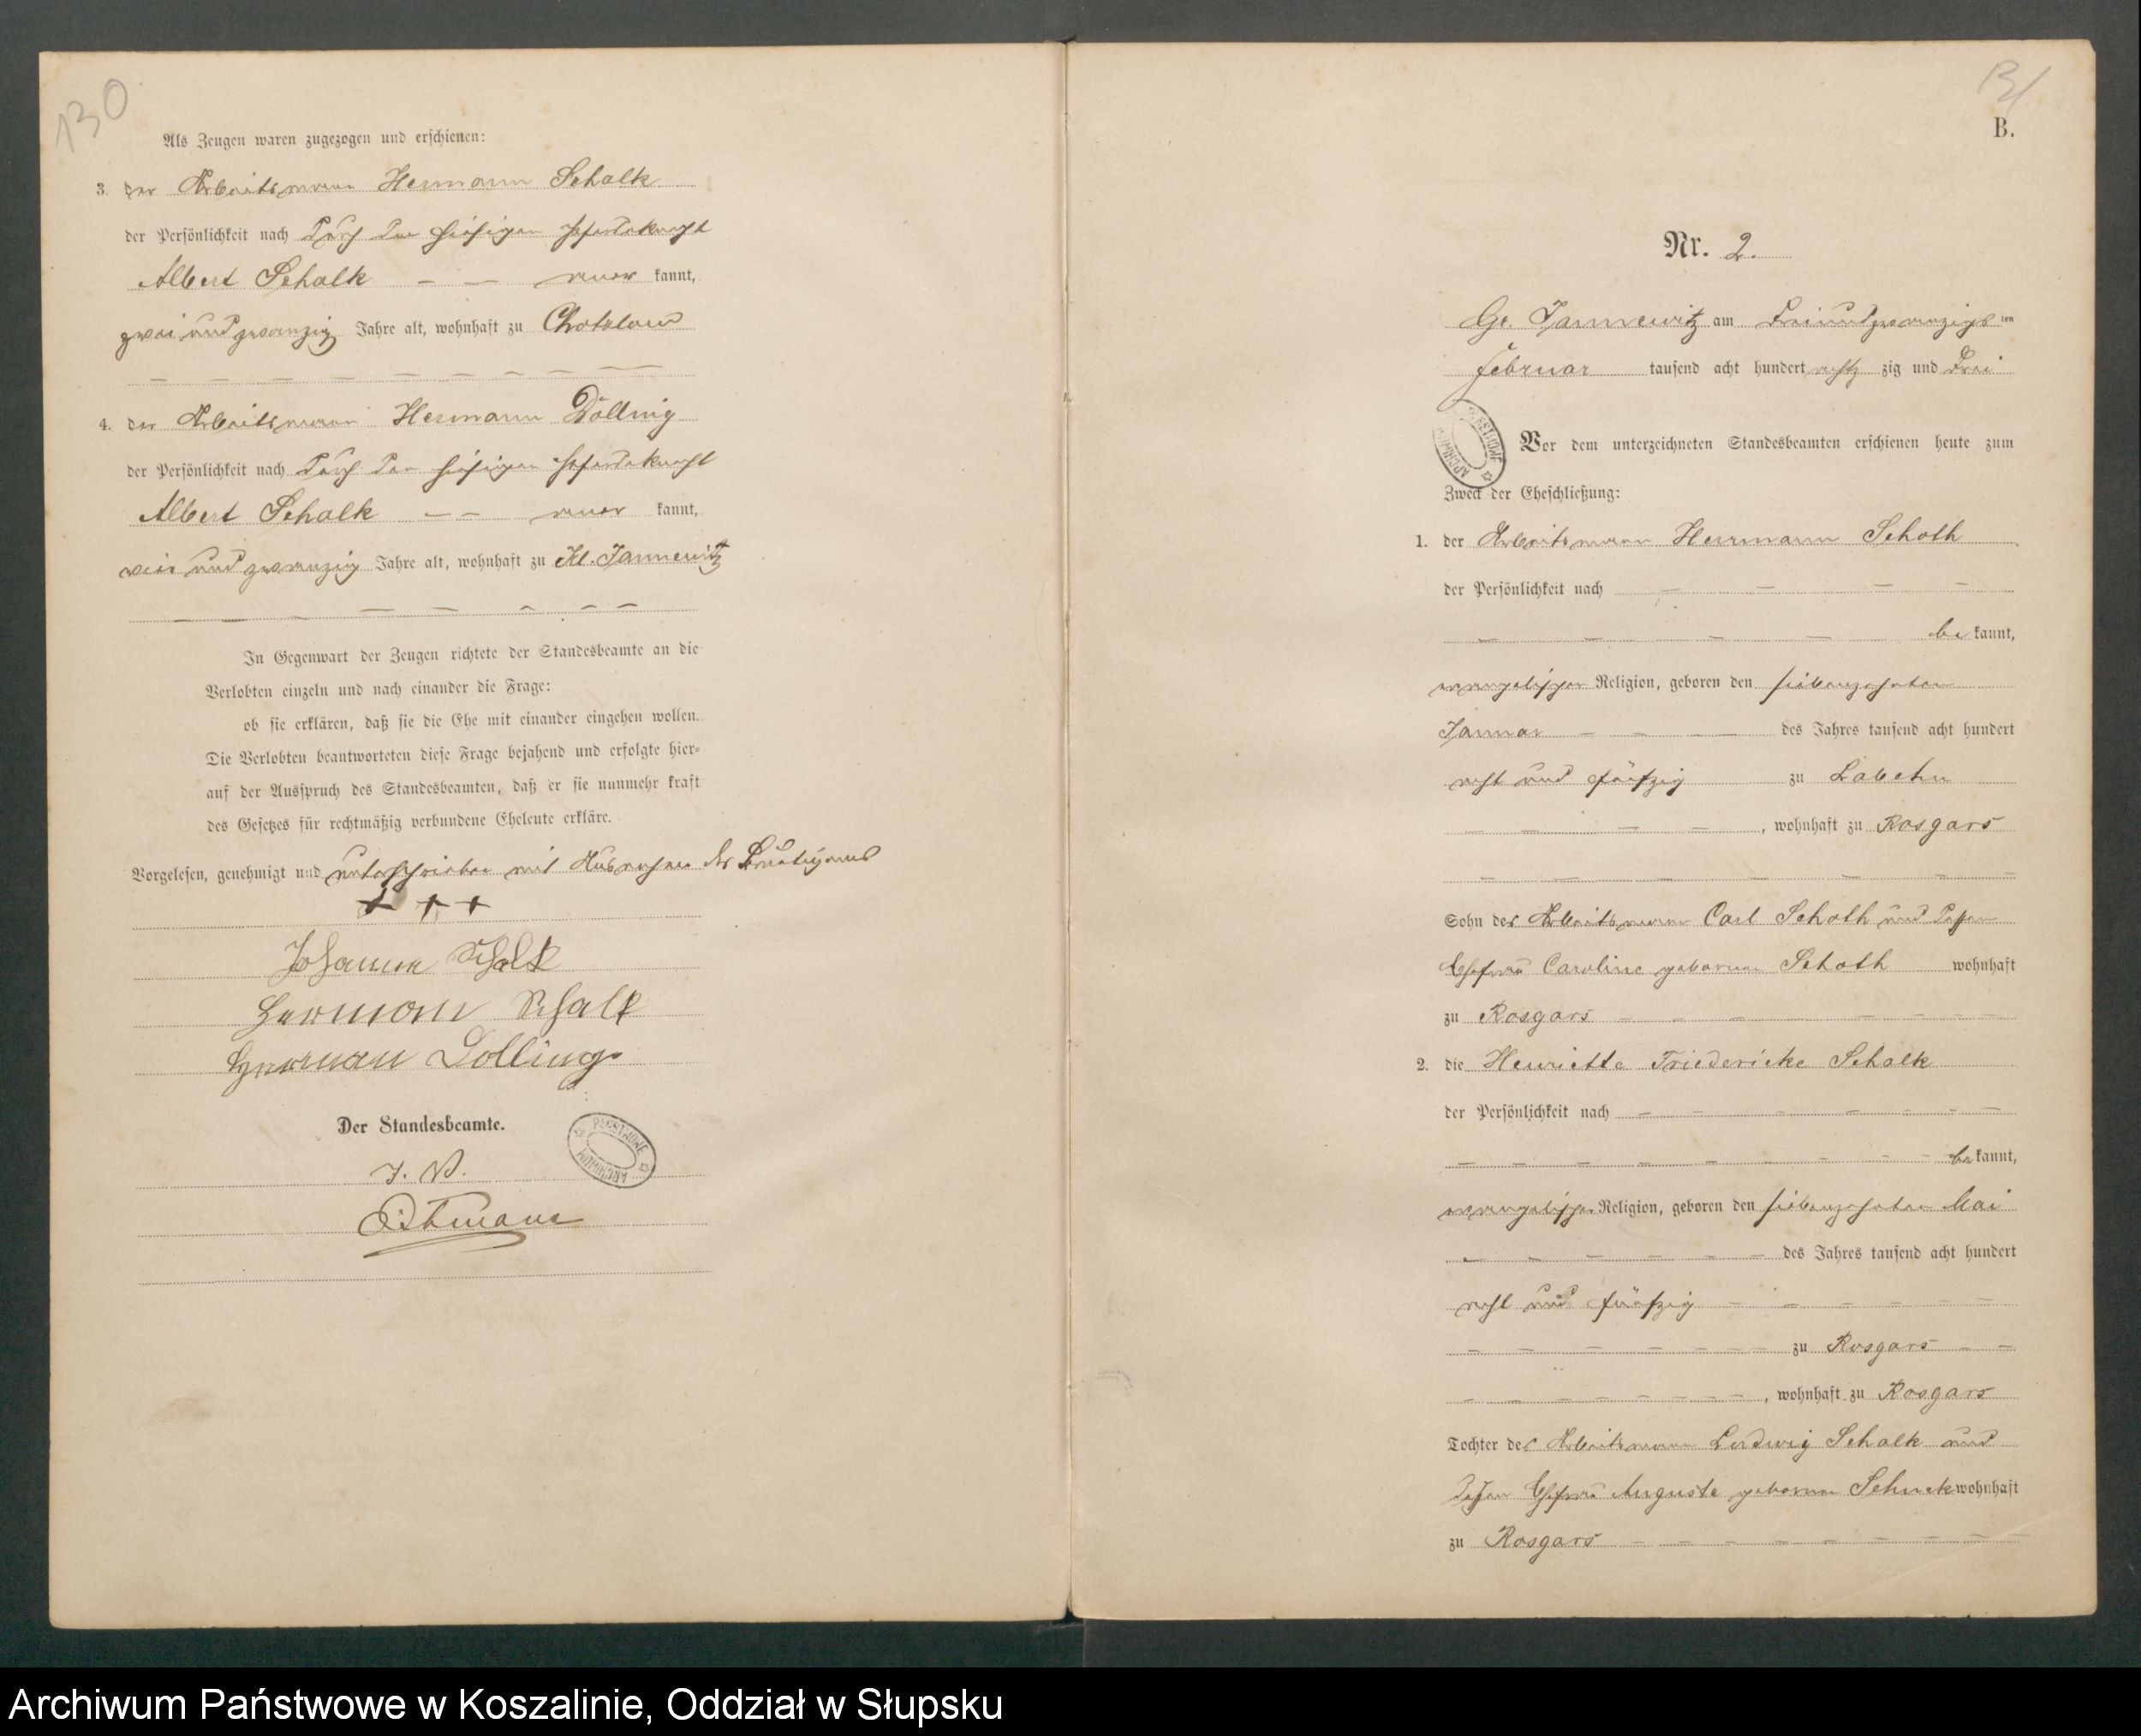 130
Als Zeugen waren zugezogen und erschienen:
3. der Arbeitsmann Hermann Schalk
der Persönlichkeit nach durch den hiesigen Pferdeknecht
Albert Schalk — — aner kannt,
zwei und zwanzig Jahre alt, wohnhaft zu Chotzlow
4. der Arbeitsmann Hermann Dölling
der Persönlichkeit nach durch den hiesigen Pferdeknecht
Albert Schalk — — aner kannt,
und zwanzig Jahre alt, wohnhaft zu Kl. Jannewitz
In Gegenwart der Zeugen richtete der Standesbeamte an die
Verlobten einzeln und nach einander die Frage:
ob sie erklären, daß sie die Ehe mit einander eingehen wollen.
Die Verlobten beantworteten diese Frage bejahend und erfolgte hier-
auf der Ausspruch des Standesbeamten, daß er sie nunmehr kraft
des Gesetzes für rechtmäßig verbundene Eheleute erkläre.
Vorgelesen, genehmigt und unterschrieben mit Ausnahme des Bräutigams
+ + +
Johanne Schalk
Hermann Schalk
Herman Dolling
Der Standesbeamte.
J. V.
PAŃSTWOWE ARCHIWUM
131
B.
Nr. 2.
Gr. Jannewitz am Dreiundzwanzigsten
Februar tausend acht hundert acht zig und drei
ARCHIWUM
Vor dem unterzeichneten Standesbeamten erschienen heute zum
Zweck der Eheschließung:
1. der Arbeitsmann Herrmann Schoth
der Persönlichkeit nach — — — —
— — — — be kannt,
evangelischer Religion, geboren den siebenzehnten
Januar — — — des Jahres tausend acht hundert
acht und fünfzig zu Labehn
— — — —, wohnhaft zu Rosgars
Sohn des Arbeitsmann Carl Schoth und dessen
Ehefrau Caroline geborene Schoth wohnhaft
zu Rosgars
2. die Henriette Friedericke Schalk
der Persönlichkeit nach
bekannt,
evangelischer Religion, geboren den siebenzehnten Mai
des Jahres tausend acht hundert
acht und fünfzig
zu Rosgars
, wohnhaft zu Rosgars
Tochter des Arbeitsmann Ludwig Schalk und
dessen Ehefrau Auguste geborene wohnhaft
zu Rosgars
Archiwum Państwowe w Koszalinie, Oddział w Słupsku